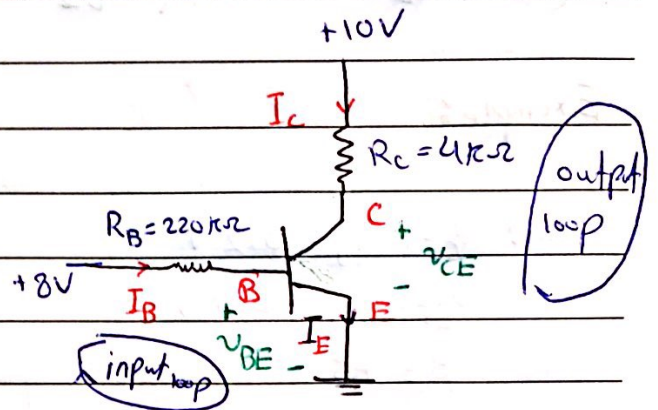 +10V
I_C
R_C = 4KΩ
output
loop
R_B = 220KΩ
C
+
V_CE
-
+8V
I_B
B
E
+
V_BE
-
I_E
input loop